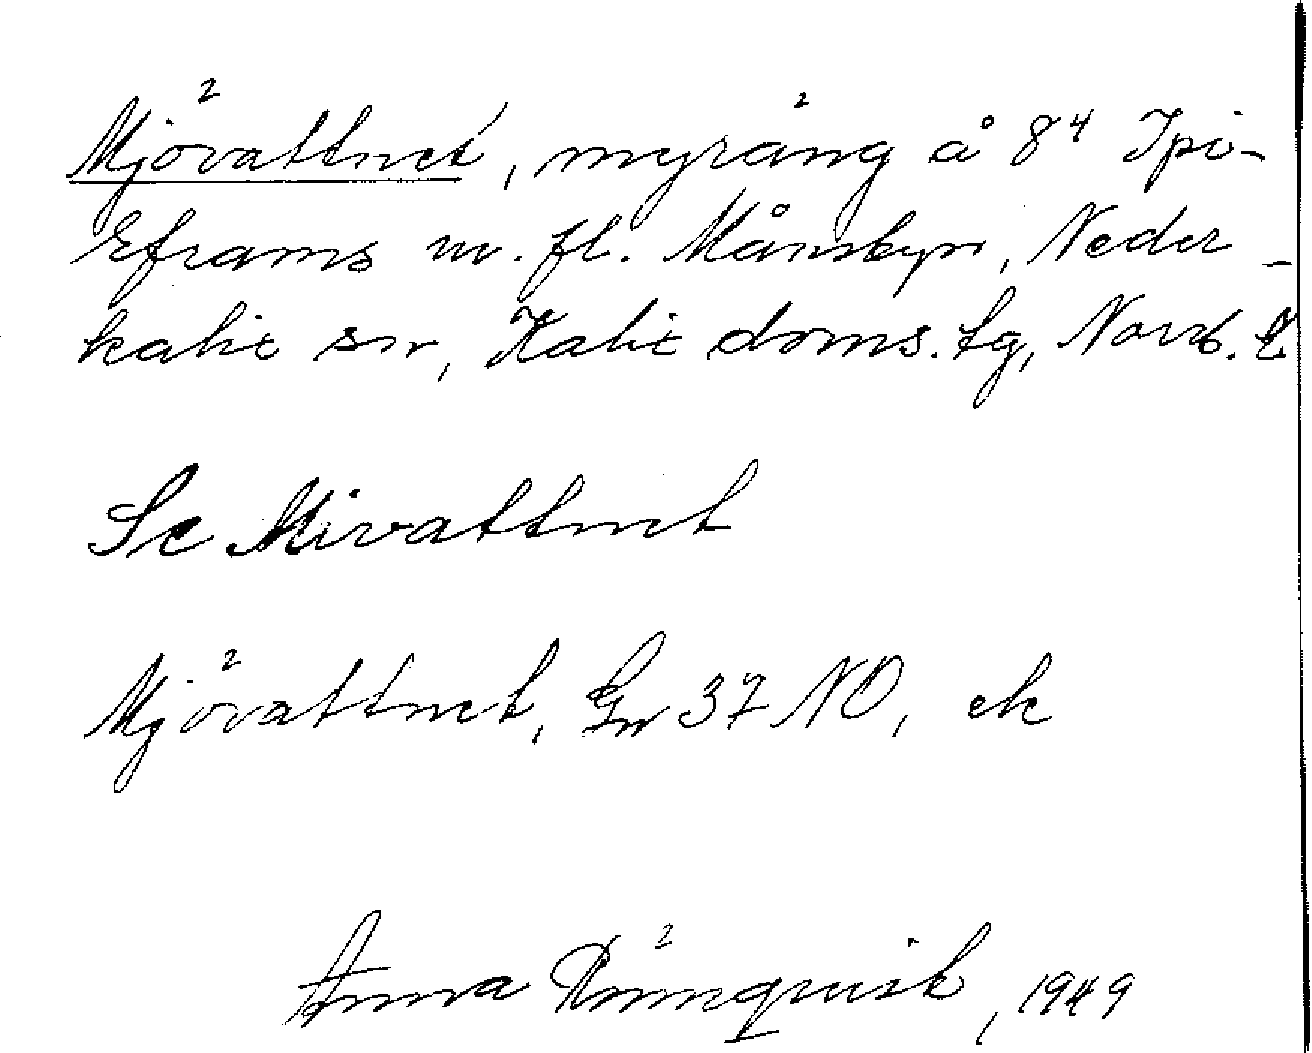 Mjövattnet, myräng å 8⁴ Ipi-
Eframs m. fl. Månsbyn, Neder-
kalix sn, Kalix doms. lg, Norrb. l.
Se Mivattnet
Mjövattnet, Gn 37 NO, ek
Anna Rönnqvist, 1949